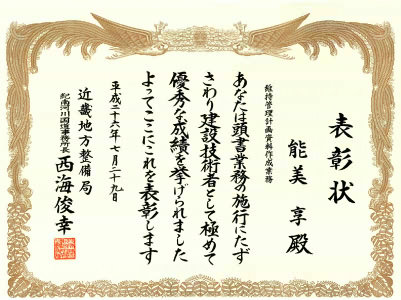 表彰状
維持管理計画資料作成業務
能美 享 殿
あなたは頭書業務の施行にたず
さわり建設技術者として極めて
優秀な成績を挙げられました
よってここにこれを表彰します
平成二十六年七月二十九日
近畿地方整備局
紀南河川国道事務所長 西海俊幸